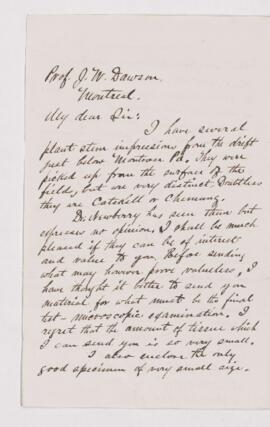 Prof. J. W. Dawson
Montreal.
My dear Sir:
I have several
plant stem impressions from the drift
just below Montrose Pa. They were
picked up from the surface of the
fields, but are very distinct. Doubtless
they are Catskill or Chemung.
Dr. Newberry has seen them but
expresses no opinion. I shall be much
pleased if they can be of interest
and value to you. Before sending
what may however prove valueless, I
have thought it better to send you
material for what must be the final
test - microscopic examination. I
regret that the amount of tissue which
I can send you is so very small.
I also enclose the only
good specimen of very small size.